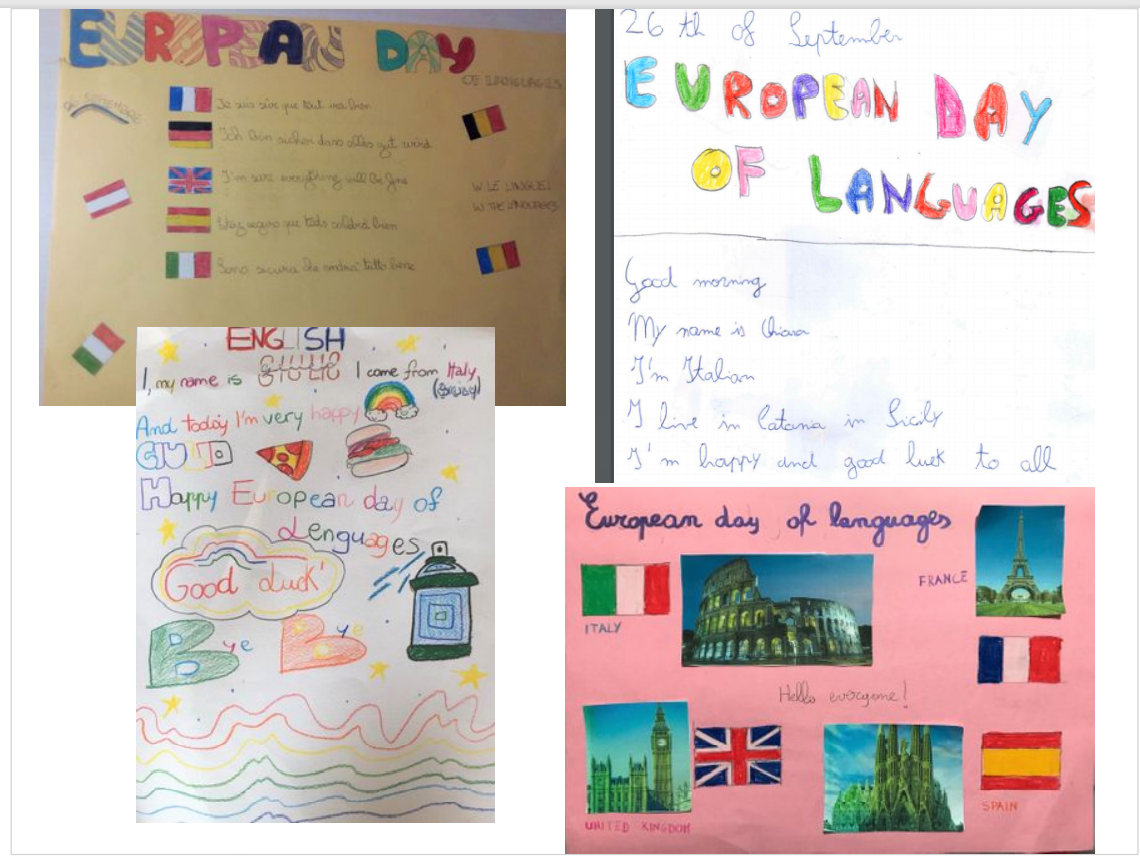 EUROPEAN DAY
OF LANGUAGES
SETTEMBRE
Je suis sûr que tout ira bien
Ich bin sicher dass alles gut wird
I'm sure everything will be fine
W LE LINGUE!
W THE LANGUAGES
que todo saldrá bien
Sono sicura che andrà tutto bene
26 th of September
EUROPEAN DAY
OF LANGUAGES
Good morning
My name is Chiara
I'm Italian
I live in Catania in Sicily
I'm happy and good luck to all
ENGLISH
I, my name is GIULIO I come from Italy,
And today I'm very happy
Happy European day of
Lenguages
Good Luck'
Bye Bye
European day of languages
FRANCE
ITALY
Hello everyone!
SPAIN
UNITED KINGDOM